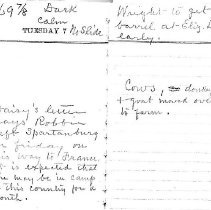 69 7/8 Dark
Calm
TUESDAY 7 No Slide
Daisy's letter
says Robbin
left Spartanburg
on friday on
his way to France.
It is expected that
he may be in camp
in this country for a
month.
Wright to get
barrel at Eliz.
early.
Cows, donkey
+ goat moved over
to farm.